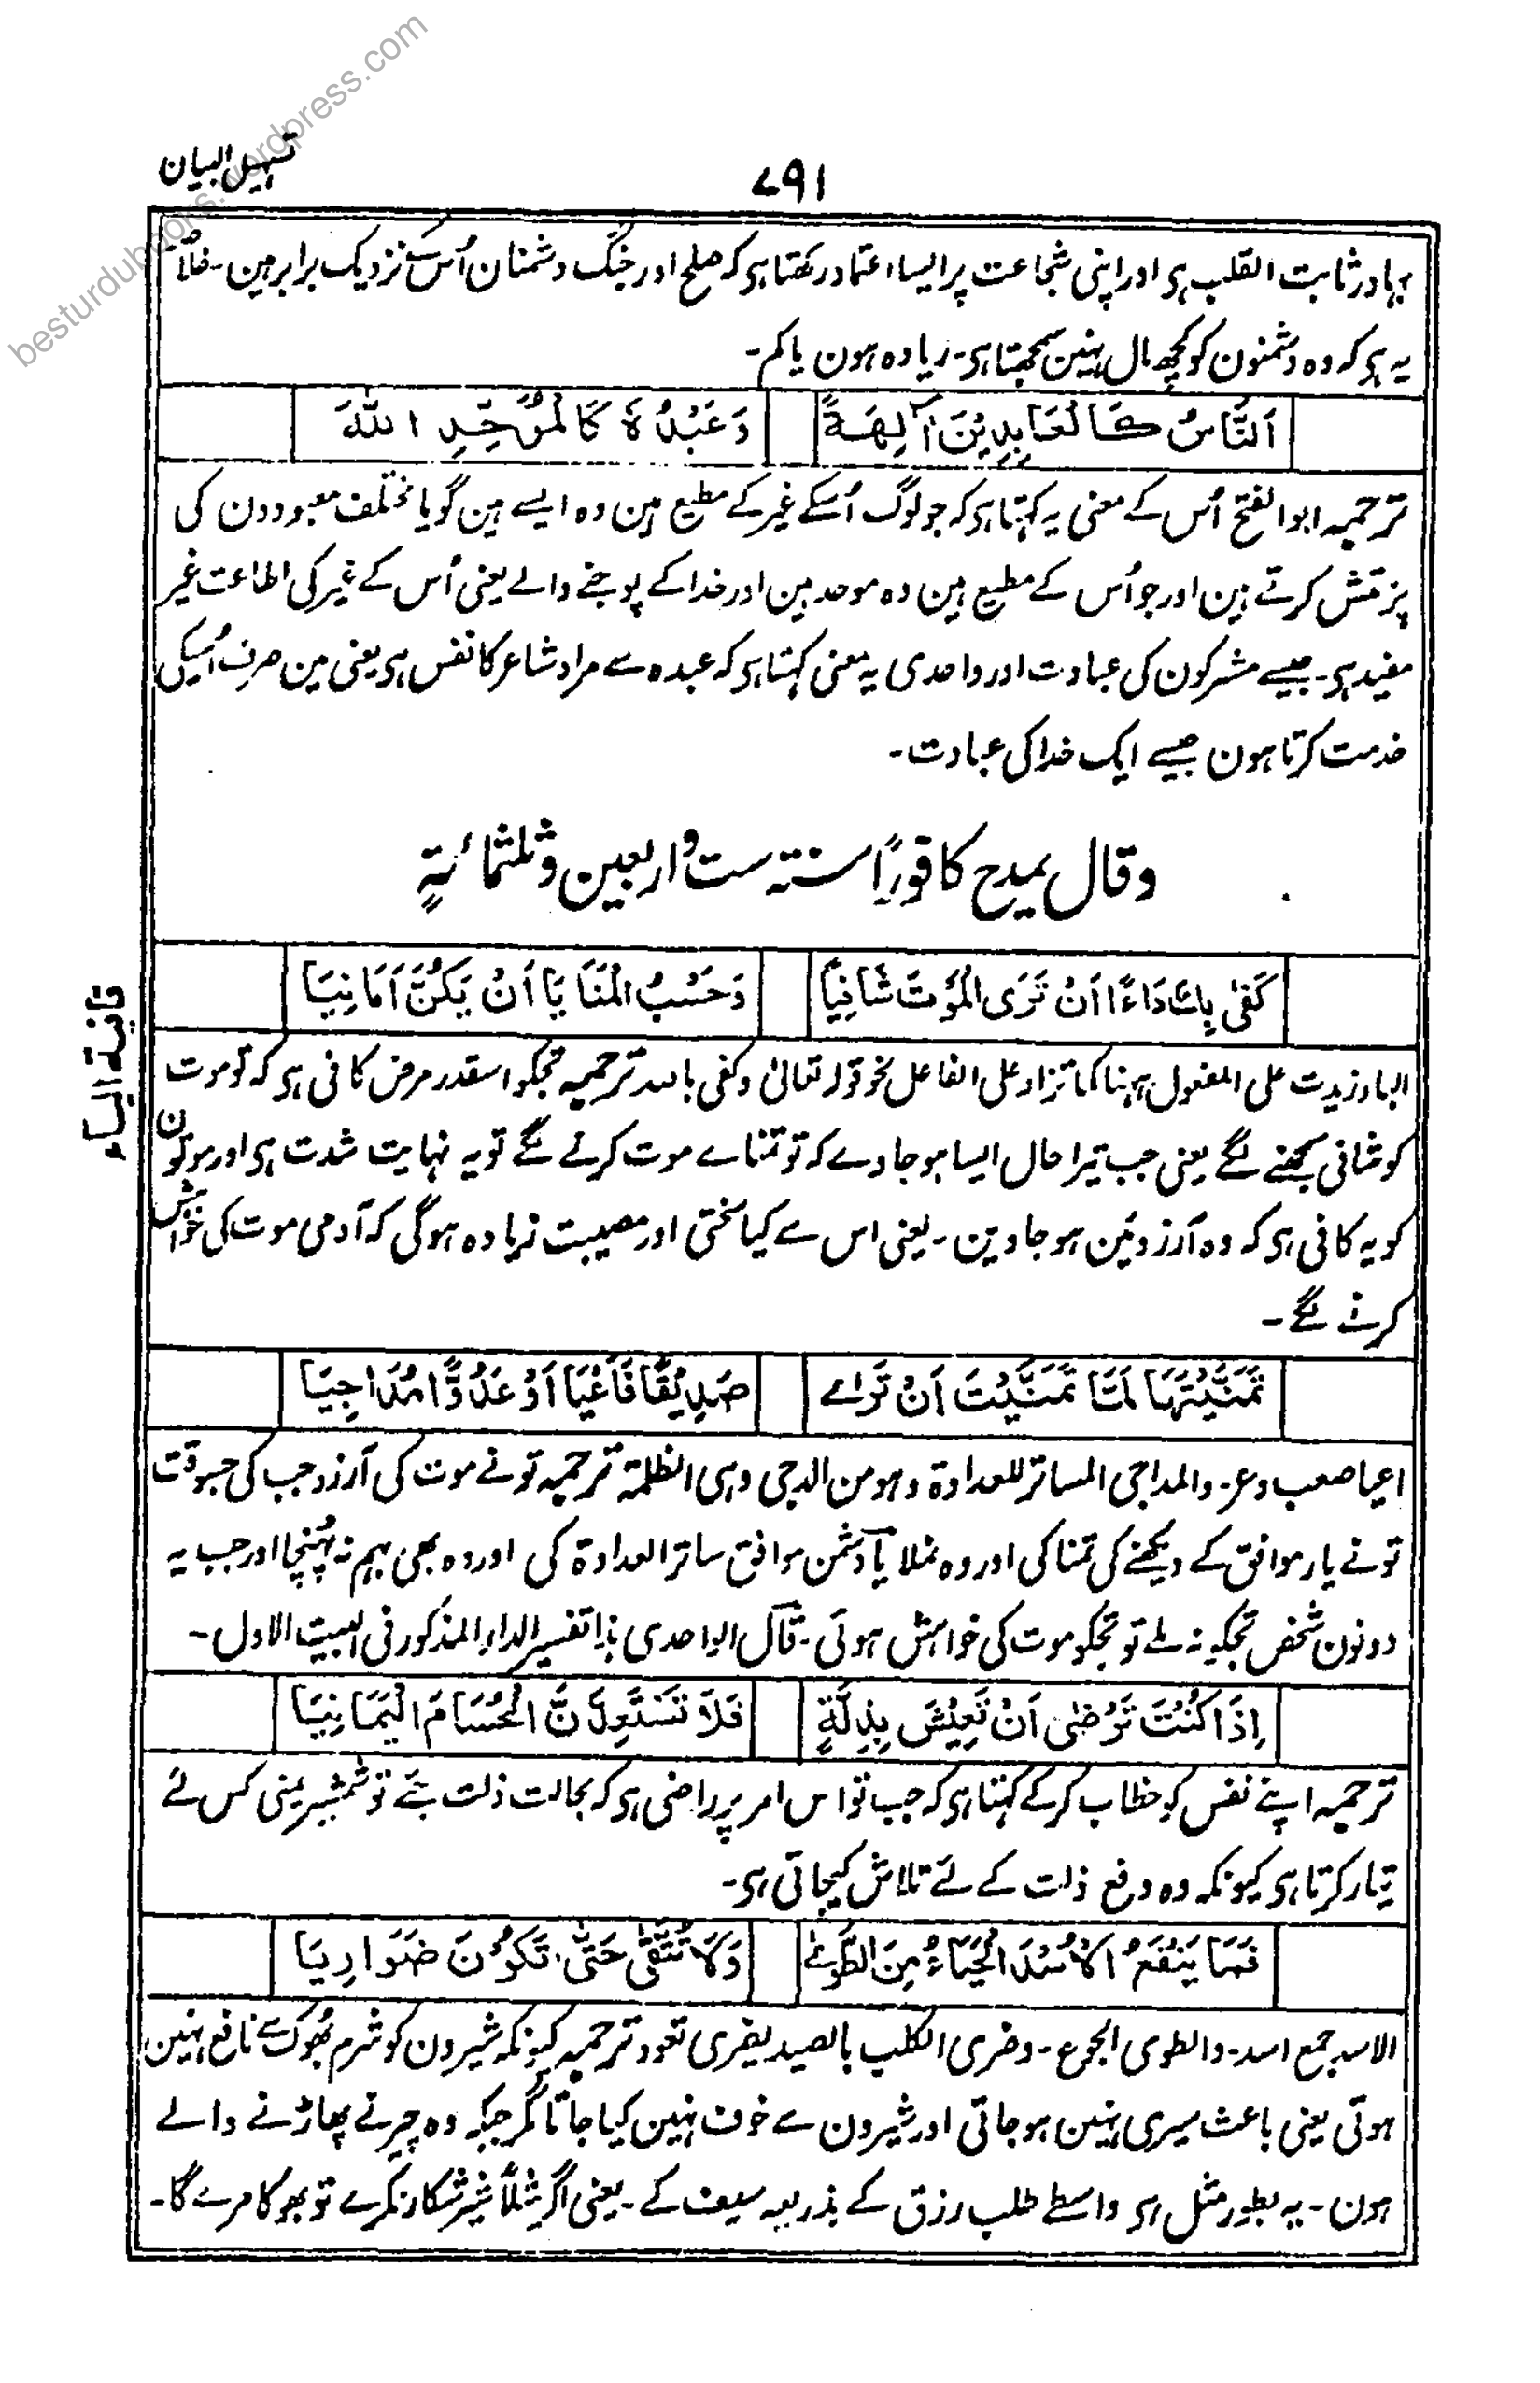 besturdubooks.wordpress.com
تسہیل البیان
۷۹۱
بہادر ثابت القلب ہی اور اپنی شجاعت پر ایسا اعتماد رکھتا ہی کہ صلح اور جنگ دشمنان اُس کے نزدیک برابر ہین۔ خلاصہ
یہ ہی کہ وہ دشمنون کو کچھ مال نہین سمجھتا ہی۔ زیادہ ہون یا کم۔
اَلنَّاسُ كَالْعَابِدِيْنَ اٰلِهَةً وَعَبْدُهٗ كَالْمُوَحِّدِ اللّٰهَ
ترجمہ ابو الفتح اُس کے معنی یہ کہتا ہی کہ جو لوگ اُسکے غیر کے مطیع ہین وہ ایسے ہین گویا مختلف معبودون کی
پرستش کرتے ہین اور جو اُس کے مطیع ہین وہ موحد ہین اور خدا کے پوجنے والے یعنی اُس کے غیر کی اطاعت غیر
مفید ہی۔ جیسے مشرکون کی عبادت اور واحدی یہ معنی کہتا ہی کہ عبدہ سے مراد شاعر کا نفس ہی یعنی مین صرف اُسیکی
خدمت کرتا ہون جیسے ایک خدا کی عبادت۔
وقال یمدح کافورًا سنتہ ست و اربعین و ثلثمائۃٍ
كَفٰى بِكَ دَاءً اَنْ تَرَى الْمَوْتَ شَافِيًا وَحَسْبُ الْمَنَايَا اَنْ يَكُنَّ اَمَانِيَا
قافیۃ الیاء
الباء زیدت علی المفعول ہہنا کما تزاد علی الفاعل نحو قولہ تعالیٰ وکفی باللہ ترجمہ تجکو اسقدر مرض کافی ہی کہ تو موت
کو شافی سمجھنے لگے یعنی جب تیرا حال ایسا ہو جاوے کہ تو تمناے موت کرنے لگے تو یہ نہایت شدت ہی اور موتون
کو یہ کافی ہی کہ وہ آرزوئین ہو جاوین۔ یعنی اس سے کیا سختی اور مصیبت زیادہ ہوگی کہ آدمی موت کی خواہش
کرنے لگے۔
تَمَنَّيْتَهَا لَمَّا تَمَنَّيْتَ اَنْ تَرٰے صَدِيْقًا فَاَعْيَا اَوْ عَدُوًّا مُدَاجِيَا
اعیا صعب وعز۔ والمداجی المساتر للعداوۃ وہو من الدجی وہی الظلمۃ ترجمہ تونے موت کی آرزو جب کی جسوقت
تونے یار موافق کے دیکھنے کی تمنا کی اور وہ نملا یا دشمن موافق ساتر العداوۃ کی اور وہ بھی بہم نہ پُہنچا اور جب یہ
دونون شخص تجکو نہ ملے تو تجکو موت کی خواہش ہوئی۔ قال الواحدی ہذا تفسیر الداء المذکور فی البیت الاول۔
اِذَا كُنْتَ تَرْضٰى اَنْ تَعِيْشَ بِذِلَّةٍ فَلَا تَسْتَعِدَّنَّ الْحُسَامَ الْيَمَانِيَا
ترجمہ اپنے نفس کو خطاب کرکے کہتا ہی کہ جب تو اس امر پر راضی ہی کہ بحالت ذلت جئے تو شمشیر یمنی کس لئے
تیار کرتا ہی کیونکہ وہ دفع ذلت کے لئے تلاش کیجاتی ہی۔
فَمَا يَنْفَعُ الْاُسْدَ الْحَيَاءُ مِنَ الطَّوٰے وَلَا تُتَّقٰى حَتّٰى تَكُوْنَ ضَوَارِيَا
الاسد جمع اسد۔ والطوی الجوع۔ وضری الکلب بالصید یضری تعود ترجمہ کیونکہ شیرون کو شرم بُھوک سے نافع نہین
ہوتی یعنی باعث سیری نہین ہوجاتی اور شیرون سے خوف نہین کیا جاتا مگر جبکہ وہ چیرنے پھاڑنے والے
ہون۔ یہ بطور مثل ہی واسطے طلب رزق کے بذریعہ سیف کے۔ یعنی اگر مثلاً شیر شکار نکرے تو بھوکا مرے گا۔